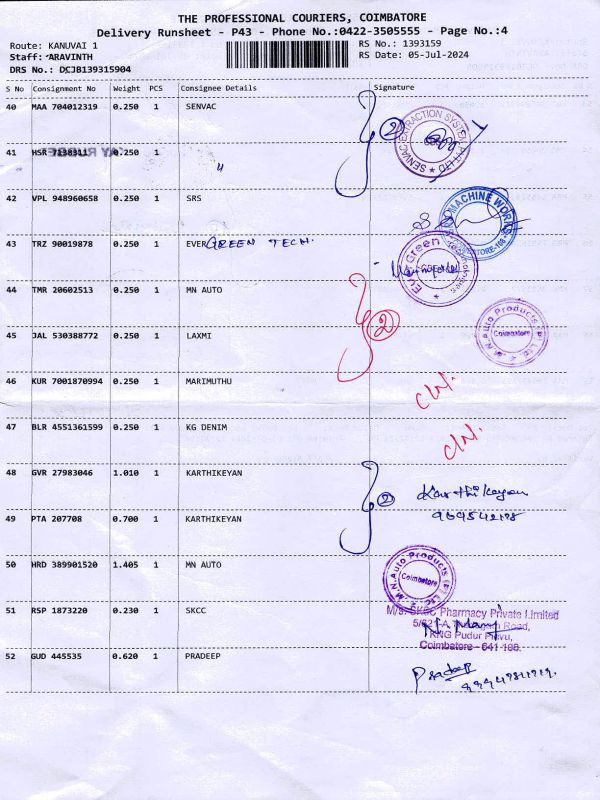 THE PROFESSIONAL COURIERS, COIMBATORE
Delivery Runsheet - P43 - Phone No.:0422-3505555 - Page No.:4
Route: KANUVAI 1 RS No.: 1393159
Staff: ARAVINTH RS Date: 05-Jul-2024
DRS No.: DCJB139315904
S No Consignment No Weight PCS Consignee Details Signature
40 MAA 704012319 0.250 1 SENVAC
SENVAC EXTRACTION SYSTEM PVT LTD
2
41 HSR 0.250 1 "
42 VPL 948960658 0.250 1 SRS
MACHINE WORKS
43 TRZ 90019878 0.250 1 EVERGREEN TECH.
Green
44 TMR 20602513 0.250 1 MN AUTO
2
M.N.Auto Products (P) Ltd.
Coimbatore
45 JAL 530388772 0.250 1 LAXMI
46 KUR 7001870994 0.250 1 MARIMUTHU
47 BLR 4551361599 0.250 1 KG DENIM
48 GVR 27983046 1.010 1 KARTHIKEYAN
2
Karthikeyan
49 PTA 207708 0.700 1 KARTHIKEYAN
50 HRD 389901520 1.405 1 MN AUTO
M.N.Auto Products (P) Ltd.
Coimbatore
51 RSP 1873220 0.230 1 SKCC
M/s. SKCC Pharmacy Private Limited
Road,
KNG Pudur Pirivu,
Coimbatore - 641 108.
52 GUD 445535 0.620 1 PRADEEP
Pradeep